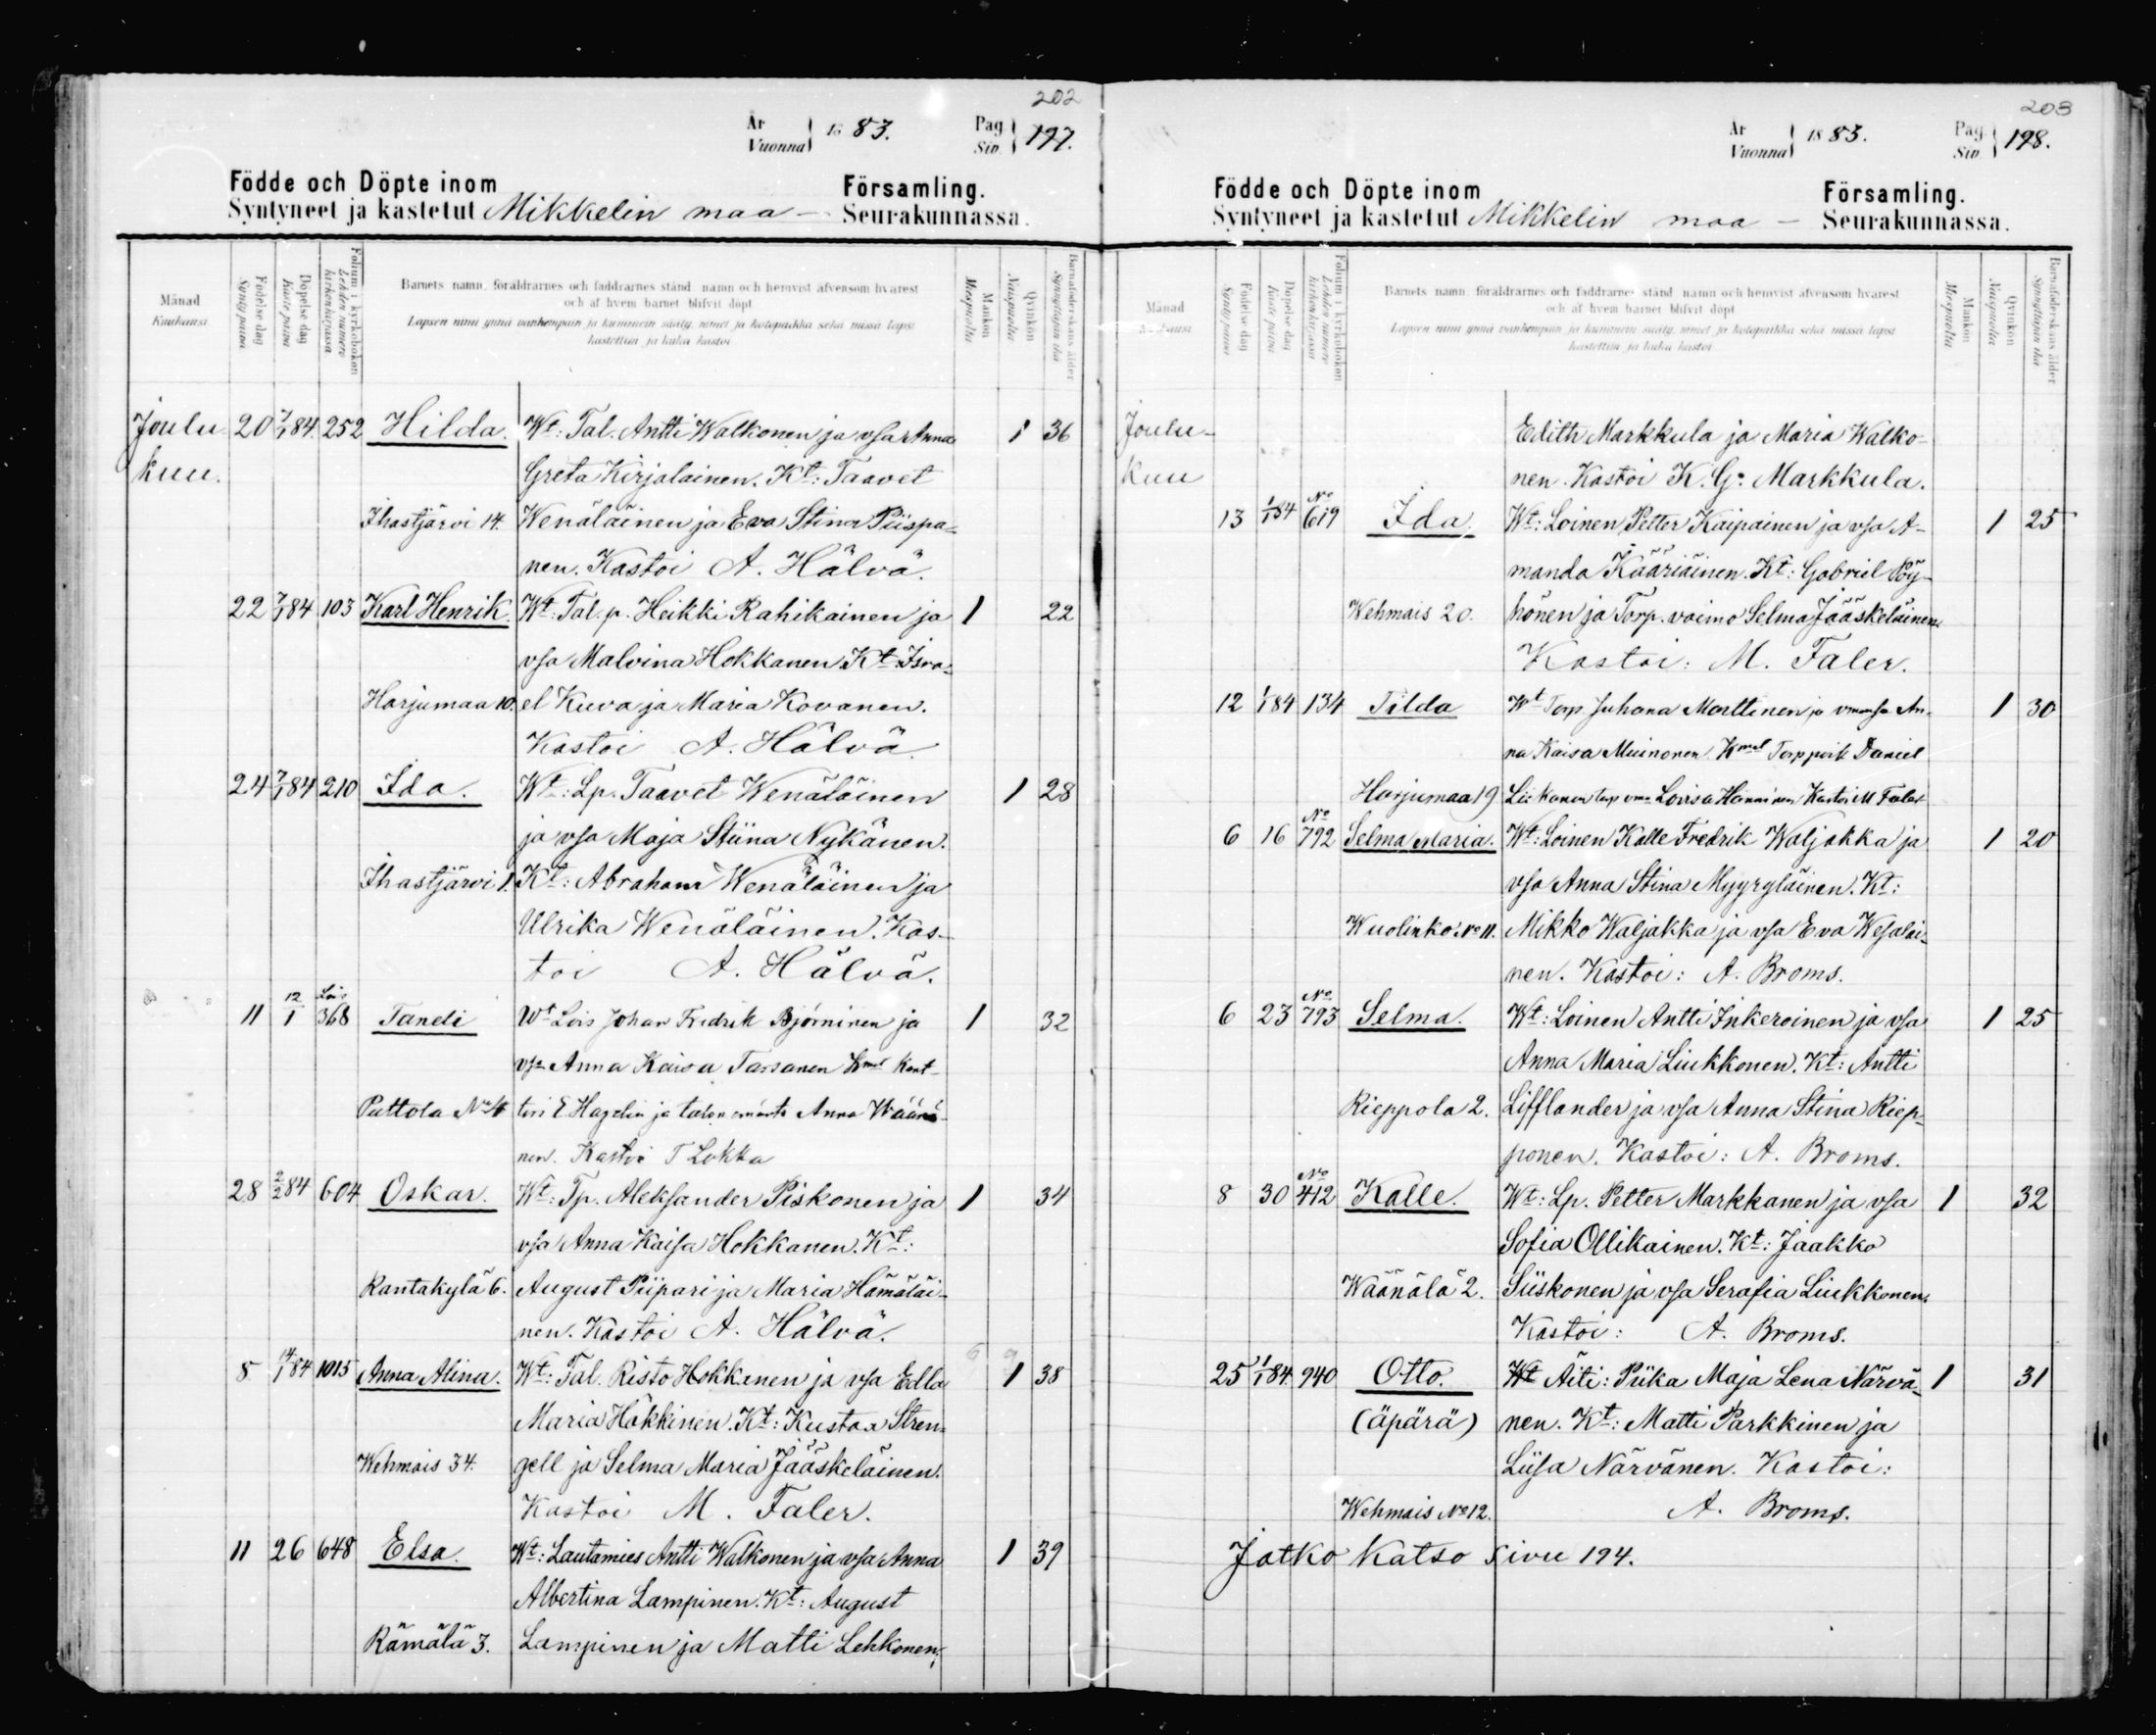 202
År Vuonna } 1883. Pag. Siv. } 197.
Födde och Döpte inom Församling.
Syntyneet ja kastetut Mikkelin maa — Seurakunnassa.
Månad Kuukausi
Födelse dag Synty päivä
Döpelse dag Kaste päivä
Folium i kyrkoboken Lehden numero kirkonkirjassa
Barnets namn, föräldrarnes och faddrarnes stånd, namn och hemvist äfvensom hvarest
och af hvem barnet blifvit döpt
Lapsen nimi ynnä vanhempain ja kummein sääty, nimet ja kotopaikka sekä missä lapsi
kastettiin ja kuka kastoi
Mankön Miespuolia
Qvinkön Naispuolia
Barnaföderskans ålder Synnyttäjän ikä
Joulu 20 7/1 84. 252 Hilda. Wt: Tal. Antti Walkonen ja vsa Anna 1 36
kuu. Greta Kirjalainen. Kt: Taavet
Ihastjärvi 14. Wenäläinen ja Eva Stina Piispa-
nen. Kastoi A. Hälvä.
22 7/1 84 103 Karl Henrik. Wt: Tal. p. Heikki Rahikainen ja 1 22
vsa Malvina Hokkanen Kt: Isra-
Harjumaa 10. el Kuva ja Maria Kovanen.
Kastoi A. Hälvä.
24 7/1 84 210 Ida. Wt: Lp. Taavet Wenäläinen 1 28
ja vsa Maja Stiina Nykänen.
Ihastjärvi 1. Kt: Abraham Wenäläinen ja
Ulrika Wenäläinen. Kas-
toi A. Hälvä.
11 12/1 Lois 368 Taneli Wt Lois Johan Fredrik Björninen ja 1 32
vsa Anna Kaisa Tarsanen Kmit Kont-
Puttola No 4 tori E Hagelin ja talon emäntä Anna Wäänä-
nen. Kastoi T Lokka
28 2/2 84 604 Oskar. Wt: Tp. Aleksander Piskonen ja 1 34
vsa Anna Kaisa Hokkanen. Kt:
Rantakylä 6. August Piipari ja Maria Hämäläi-
nen. Kastoi A. Hälvä.
8 14/1 84 1015 Anna Alina. Wt: Tal. Risto Hokkanen ja vsa Edla 1 38
Maria Häkkinen. Kt: Kustaa Stren-
Wehmais 34. gell ja Selma Maria Jääskeläinen.
Kastoi M. Faler.
11 26 648 Elsa. Wt: Lautamies Antti Walkonen ja vsa Anna 1 39
Albertina Lampinen. Kt: August
Rämälä 3. Lampinen ja Matti Lehkonen,
203
År Vuonna } 1883. Pag. Siv. } 198.
Födde och Döpte inom Församling.
Syntyneet ja kastetut Mikkelin maa — Seurakunnassa.
Månad Kuukausi
Födelse dag Synty päivä
Döpelse dag Kaste päivä
Folium i kyrkoboken Lehden numero kirkonkirjassa
Barnets namn, föräldrarnes och faddrarnes stånd, namn och hemvist äfvensom hvarest
och af hvem barnet blifvit döpt
Lapsen nimi ynnä vanhempain ja kummein sääty, nimet ja kotopaikka sekä missä lapsi
kastettiin ja kuka kastoi
Mankön Miespuolia
Qvinkön Naispuolia
Barnaföderskans ålder Synnyttäjän ikä
Joulu- Edith Markkula ja Maria Walko-
kuu nen. Kastoi K. G. Markkula.
13 1/1 84 No 619 Ida. Wt: Loinen Petter Kaipainen ja vsa A- 1 25
manda Kääriäinen. Kt: Gabriel Pöy-
Wehmais 20. hönen ja Torp. vaimo Selma Jääskeläinen.
Kastoi: M. Faler.
12 1/1 84 134 Tilda Wt Torp Juhana Marttinen ja vmonsa An- 1 30
na Kaisa Muinonen Kmit Torp poik Daniel
Harjumaa 19 Liikanen torp vmo Lovisa Hänninen Kastoi M Faler
6 16 No 792 Selma Maria. Wt: Loinen Kalle Fredrik Waljakka ja 1 20
vsa Anna Stina Myyryläinen. Kt:
Wuolinko No 11. Mikko Waljakka ja vsa Eva Wesalai-
nen. Kastoi: A. Broms.
6 23 No 793 Selma. Wt: Loinen Antti Inkeroinen ja vsa 1 25
Anna Maria Liukkonen. Kt: Antti
Rieppola 2. Lifflander ja vsa Anna Stina Riep-
ponen. Kastoi: A. Broms.
8 30 No 412 Kalle. Wt: Lp. Petter Markkanen ja vsa 1 32
Sofia Ollikainen. Kt: Jaakko
Wäänälä 2. Siiskonen ja vsa Serafia Liukkonen.
Kastoi: A. Broms.
25 1/1 84. 940 Otto. Wt Äiti: Piika Maja Lena Närvä- 1 31
(äpärä) nen. Kt: Matti Parkkinen ja
Liisa Närvänen. Kastoi:
Wehmais No 12. A. Broms.
Jatko Katso sivu 194.